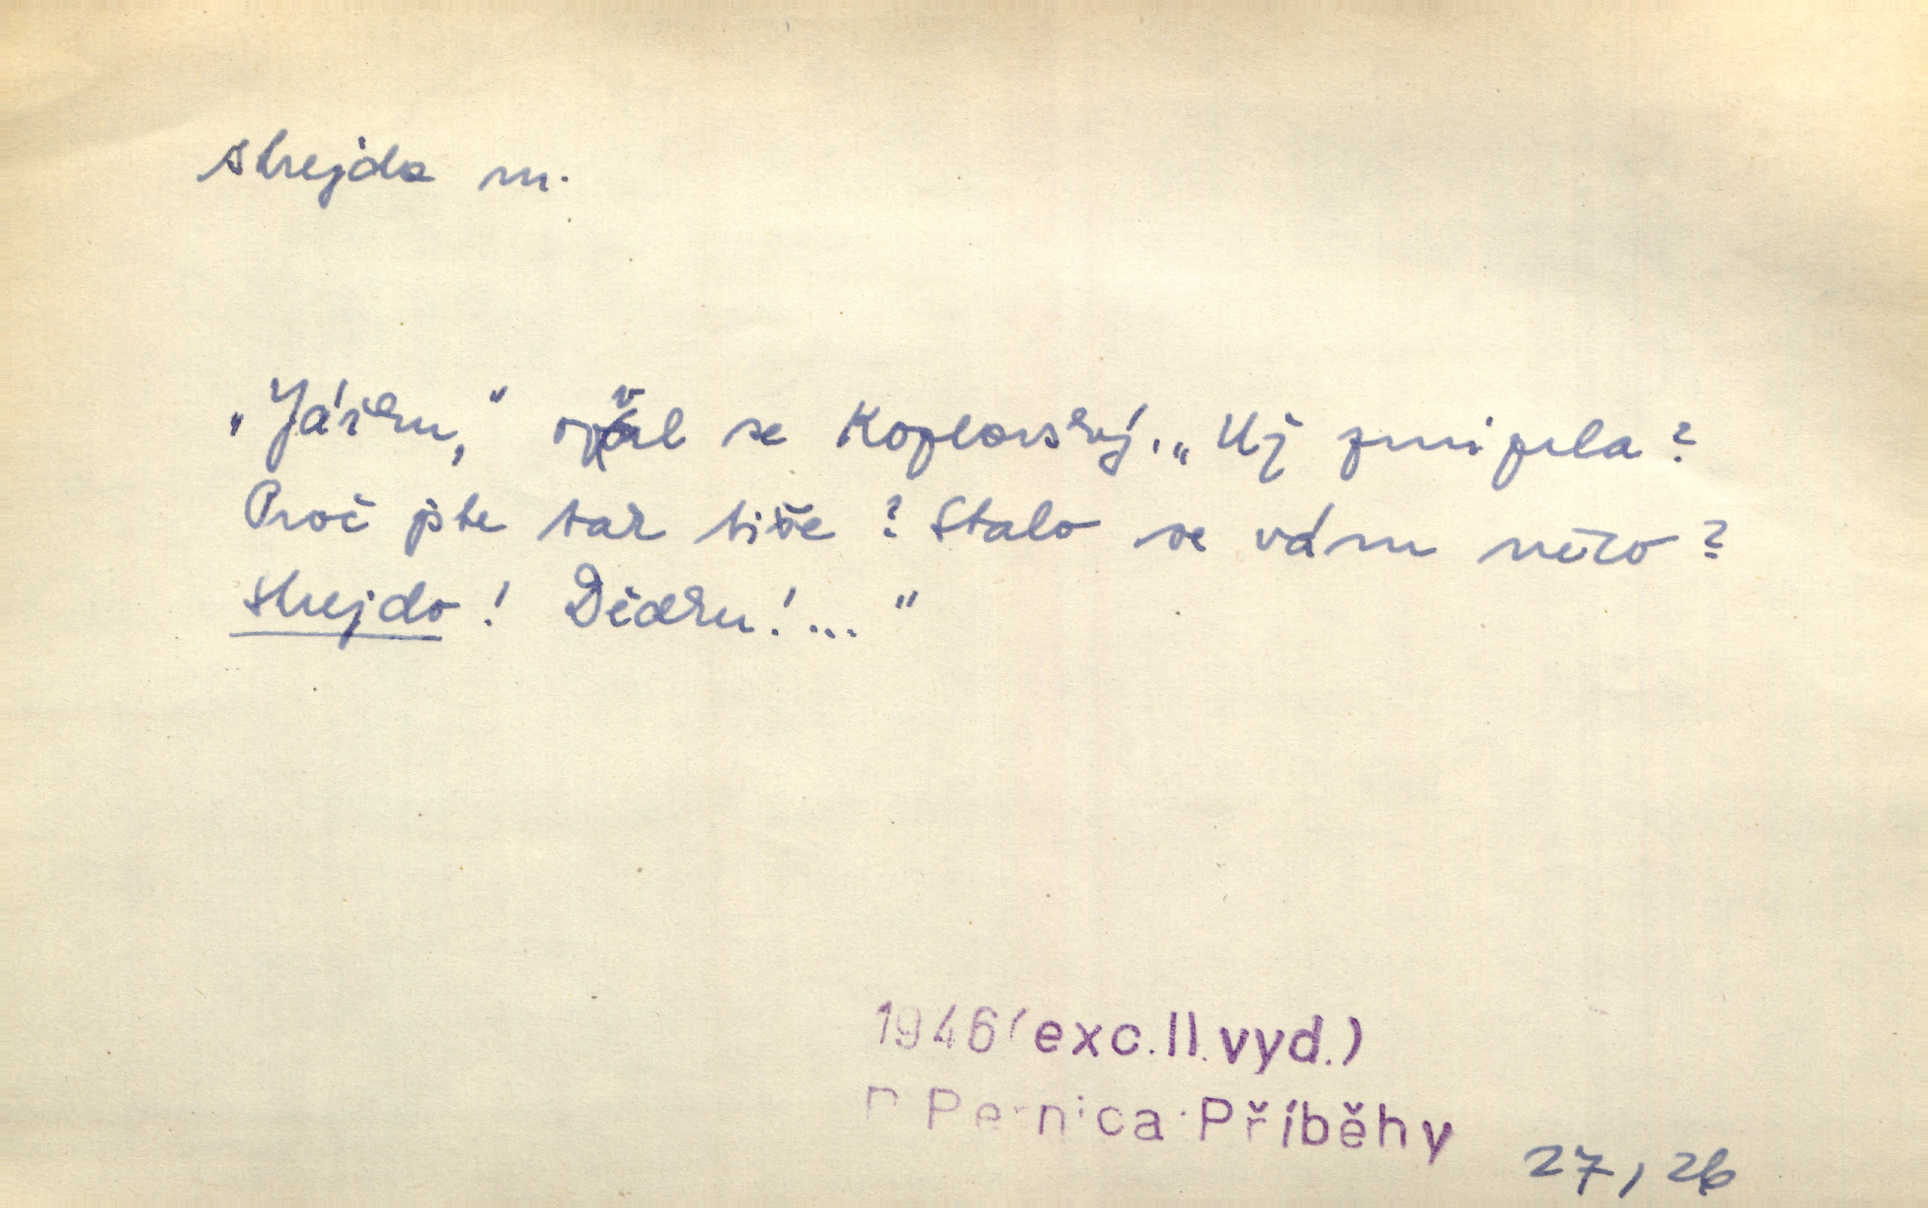 strejda m.
„Jářku,“ ozval se Koplovský. „Už
Proč jste tak tiše? Stalo se vám něco?
strejdo! Dědku!..."
1946 (exc. II. vyd.)
Pernica: Příběhy
27, 26